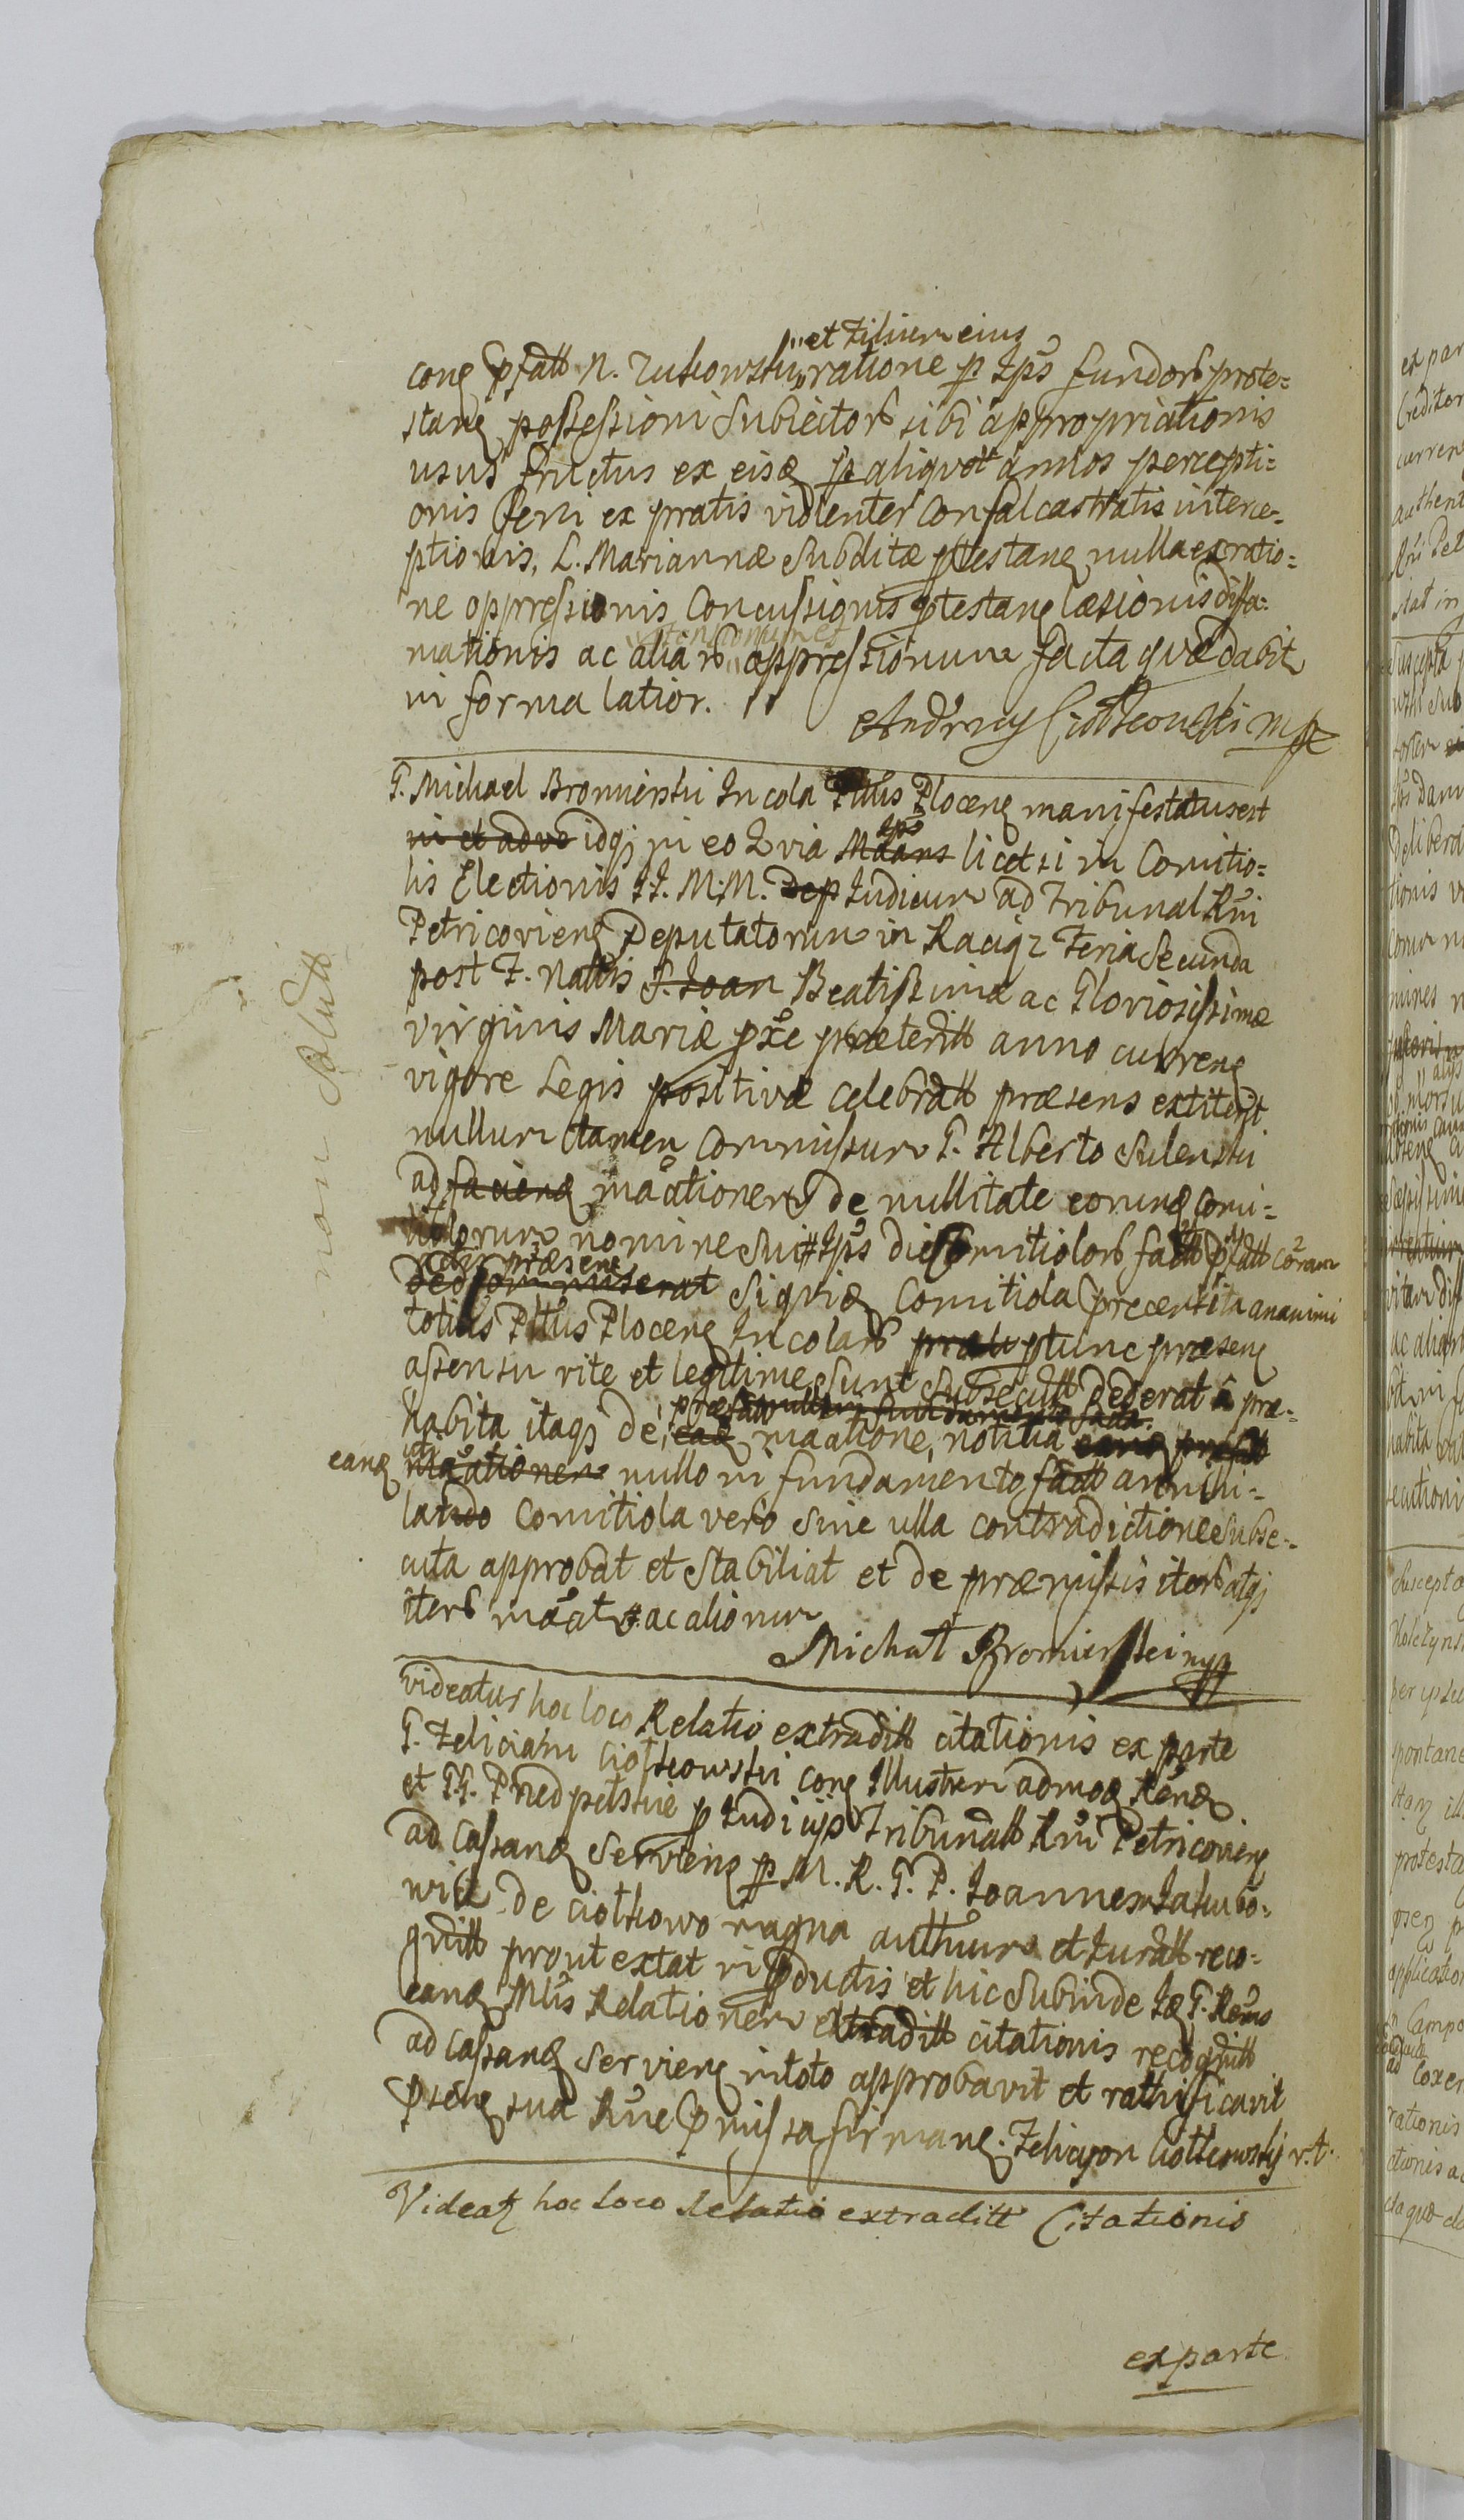 et Filium eius
cong pfatt N. Zukowski ratione p Ips fundorb prote=
stang possessioni Subiectorb sibi appropriationis
usus fructus ex eisq p aliquot annos percepti=
onis feni ex pratis violenter Confalcastratis interce=
ptionis, L. Mariannæ Subditæ ptestang nulla ex ratio=
ne oppressionis Concussionis ptestang læsionis diffa=
mationis ac aliarb oppressionum facta quæ dabit
in forma latior.
Andrzey Ciołkowski mp
G. Michael Bromierski Incola Pttus Ploceng manifestatus est
in et adve idq in eo Quia Maans licet si in Comitio=
lis Electionis JJ. M.M. Dep Iudicum ad Tribunal Rni
Petricovieng Deputatorum in Raciąz Feria Secunda
post F. Nattis S. Joan Beatissimæ ac Gloriosissimæ
Virginis Mariæ pxe præteritt anno curreng
vigore Legis positivæ celebratt præsens extiterit
nullum tamen Commissum G. Alberto Sulenski
ad facieng maationem de nullitate eorung Comi=
tiolorum nomine Sui Ips die Comitiolorb fatt pfatt coram
Actis præseng
Ded Commiserat Siquiq Comitiola præcensita ananimi
totius Pttus Ploceng Incolarb ptunc præseng
assensu rite et legitime Sunt Subsecutt Dederat præ=
habita itaq de, eaq maatione, notitia
eang maationem nullo in fundamento fatt annihi=
lando Comitiola vero Sine ulla contradictione Subse=
cuta approbat et Stabiliat et de præmissis iterb atq
iterb maat ac alionum
Michał Bromierski mp
non Solutt
videatur hoc loco Relatio extraditt citationis ex parte
G. Feliciani Ciołkowski cong Illustrem admoq Reng
et GG. Przedpełskie p Iudicijs Tribunatt Rni Petricovieng
ad Cassang Servieng p M. R. G. P. Joannem Jakubo=
wicz de Ciołkowo magna authum et Juratt reco=
gnitt prout extat in pductis et hic Subinde Iq G. Rems
eang Mlis Relationem extraditt citationis recognitt
ad Cassang Servieng in toto approbavit et rathificavit
pseng sua Rne pmissa firmang. Felicyan Ciołkowskij r.t.
Videatq hoc loco Relatio extraditt Citationis
ex parte